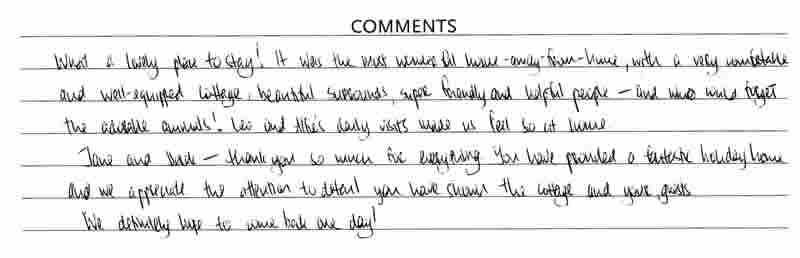 COMMENTS
What a lovely place to stay! It was the most wonderful home-away-from-home, with a very comfortable
and well-equipped cottage, beautiful surrounds, super friendly and helpful people – and who would forget
the adorable animals! Leo and Alfie's daily visits made us feel so at home
Jane and – thank you so much for everything. You have provided a fantastic holiday home
and we appreciate the attention to detail you have shown the cottage and your guests
We definitely hope to come back one day!